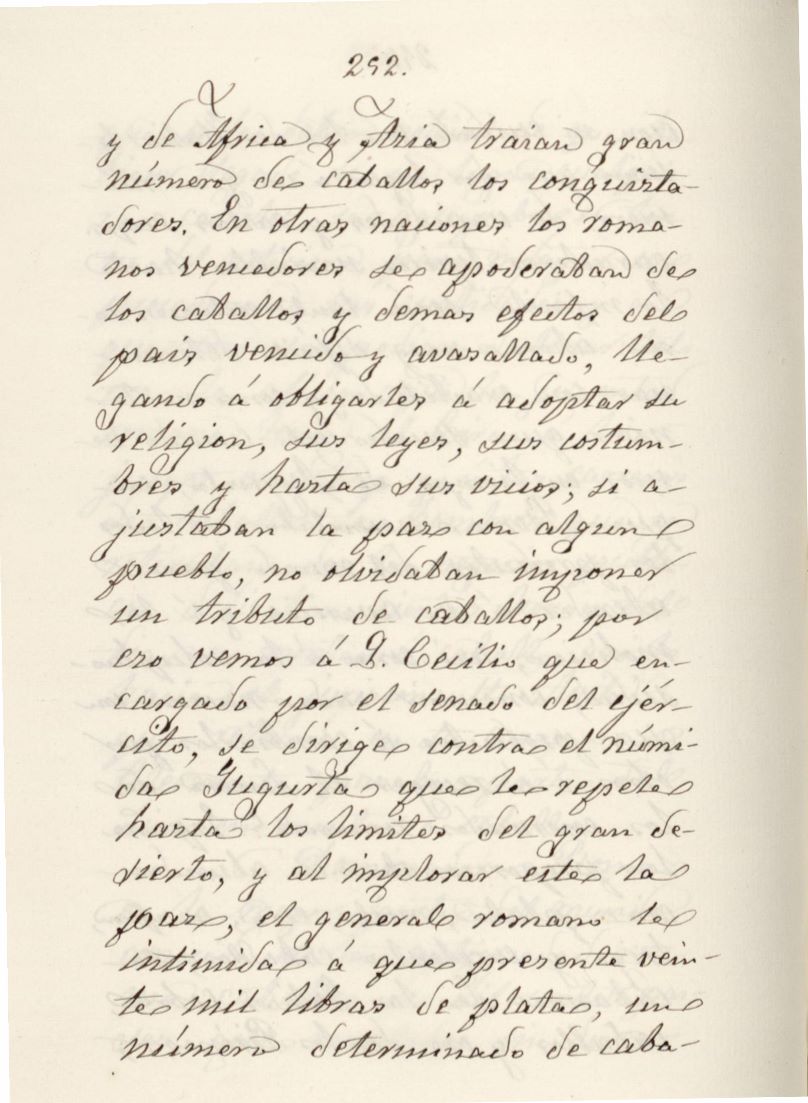 292.
y de Africa y Azia traian gran
número de caballos los conquista-
dores. En otras naciones los roma-
nos vencedores se apoderaban de
los caballos y demas efectos del
pais vencido y avasallado, lle-
gando á obligarles á adoptar su
religion, sus leyes, sus costum-
bres y hasta sus vicios; si a-
justaban la paz con algun
pueblo, no olvidaban imponer
un tributo de caballos; por
eso vemos á Q. Cecilio que en-
cargado por el senado del ejér-
cito, se dirige contra el númi-
da Jugurta que le repele
hasta los limites del gran de-
sierto, y al implorar este la
paz, el general romano le
intimida á que presente vein-
te mil libras de plata, un
número determinado de caba-